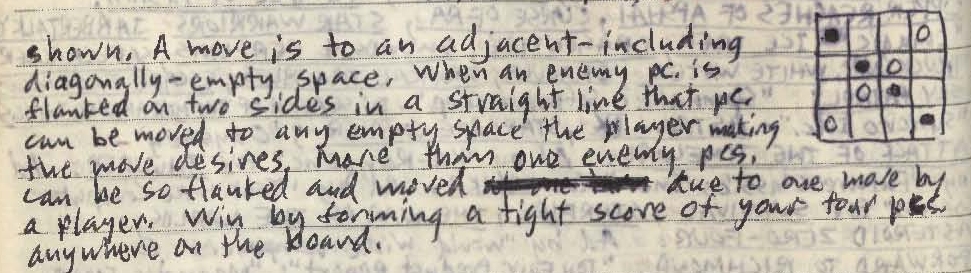 shown. A move is to an adjacent-including
diagonally-empty space. When an enemy pc. is
flanked on two sides in a straight line that pc.
can be moved to any empty space the player making
the move desires. More than one enemy pcs.
can be so flanked and moved due to one move by
a player. Win by forming a tight score of your four pcs
anywhere on the board.